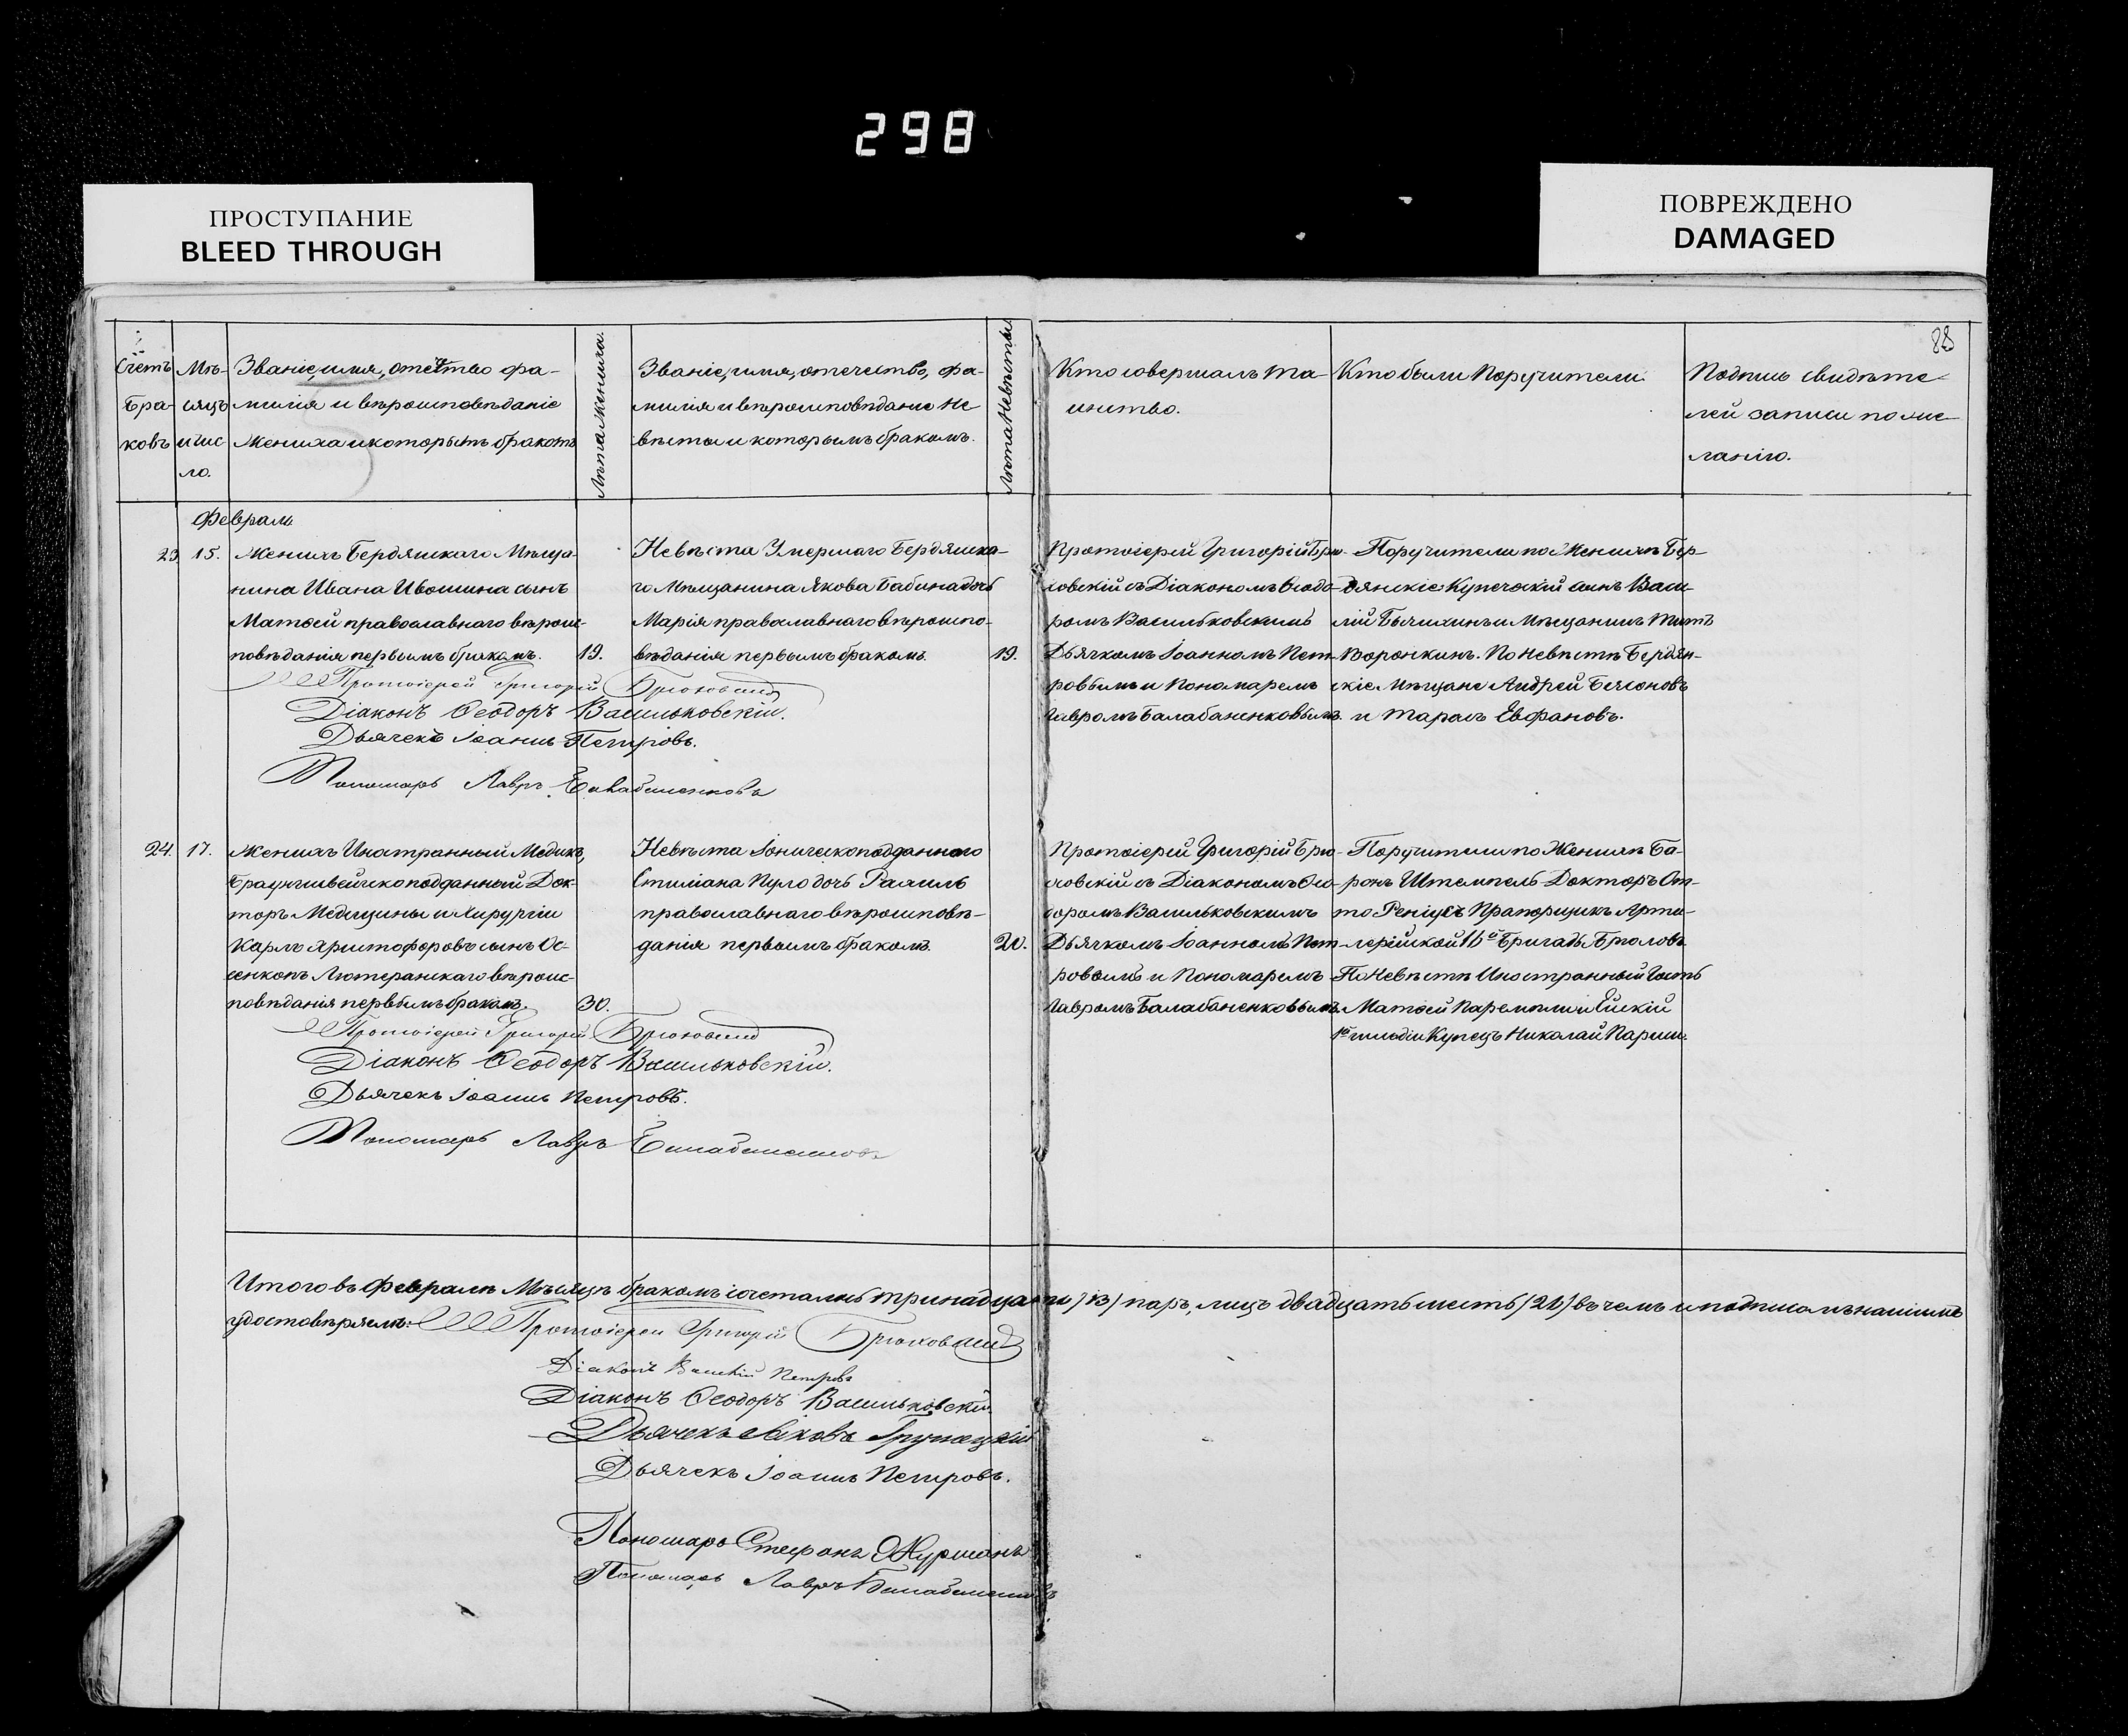 298
ПРОСТУПАНИЕ
BLEED THROUGH
ПОВРЕЖДЕНО
DAMAGED
88
Счетъ
Бра-
ковъ
Мѣ-
сяцъ
и чис
ло.
Званіе, имя, отечество фа-
милія и вѣроисповѣданіе
Жениха и которымъ бракомъ
Лѣта Жениха.
Званіе, имя, отечество, фа-
милія и вѣроисповѣданіе Не
вѣсты и которымъ бракомъ.
Лѣта Невѣсты
Кто совершалъ та-
инство.
Кто были Поручители.
Подпись свидѣте-
лей записи по же
ланію.
Февраль
23
15.
Женихъ Бердянскаго Мѣща-
нина Ивана Ивошина сынъ
Матѳей православнаго вѣроис-
повѣданія первымъ бракомъ.
19.
Невѣста Умершаго Бердянска-
го Мѣщанина Якова Бабина дочь
Марія православнаго вѣроиспо-
вѣданія первымъ бракомъ.
19.
Протоіерей Григорій Брю-
ховскій съ Діакономъ Ѳеодо-
ромъ Васильковскимъ
Дьячкомъ Іоанномъ Пет-
ровымъ и Пономаремъ
Лавромъ Балабаненковымъ.
Поручители по Женихѣ Бер-
дянскіе: Купеческій сынъ Васи-
лій Бычихинъ и Мѣщанинъ Титъ
Воронкинъ. По Невѣстѣ Бердян-
скіе Мѣщане Андрей
и Тарасъ Евфановъ.
Протоіерей Григорій Брюховскій
Діаконъ Ѳеодоръ Васильковскій.
Дьячекъ Іоаннъ Петровъ.
Пономарь Лавръ Балабаненковъ
24.
17.
Женихъ Иностранный Медикъ,
Брауншвейгскоподданный Док-
торъ Медицины и Хирургіи
Карлъ Христофоровъ сынъ Ос-
сенкопъ Лютеранскаго вѣроис-
повѣданія первымъ бракомъ.
30.
Невѣста Іоническоподданнаго
Стиліана Пуло дочь Рахиль
православнаго вѣроисповѣ-
данія первымъ бракомъ.
20.
Протоіерей Григорій Брю-
ховскій съ Діакономъ Ѳео-
доромъ Васильковскимъ
Дьячкомъ Іоанномъ Пет-
ровымъ и Пономаремъ
Лавромъ Балабаненковымъ.
Поручители по Женихѣ Ба-
ронъ Штемпель Докторъ От-
то Прапорщикъ Арти-
лерійской 16й Бригады
По Невѣстѣ Иностранный Гость
Матѳей и Ейскій
1й гильдіи Купецъ Николай
Протоіерей Григорій Брюховскій
Діаконъ Ѳеодоръ Васильковскій.
Дьячекъ Іоаннъ Петровъ.
Пономарь Лавръ Балабаненковъ
Итого въ Февралѣ Мѣсяцѣ бракомъ сочеталось тринадцать /13/ паръ, лицъ двадцать шесть /26/ въ чемъ и подписомъ нашимъ
удостовѣряемъ: Протоіерей Григорій Брюховскій
Діаконъ Василій Петровъ
Діаконъ Ѳеодоръ Васильковскій.
Дьячекъ Іаковъ
Дьячекъ Іоаннъ Петровъ.
Пономарь Стефанъ
Пономарь Лавръ Балабаненковъ